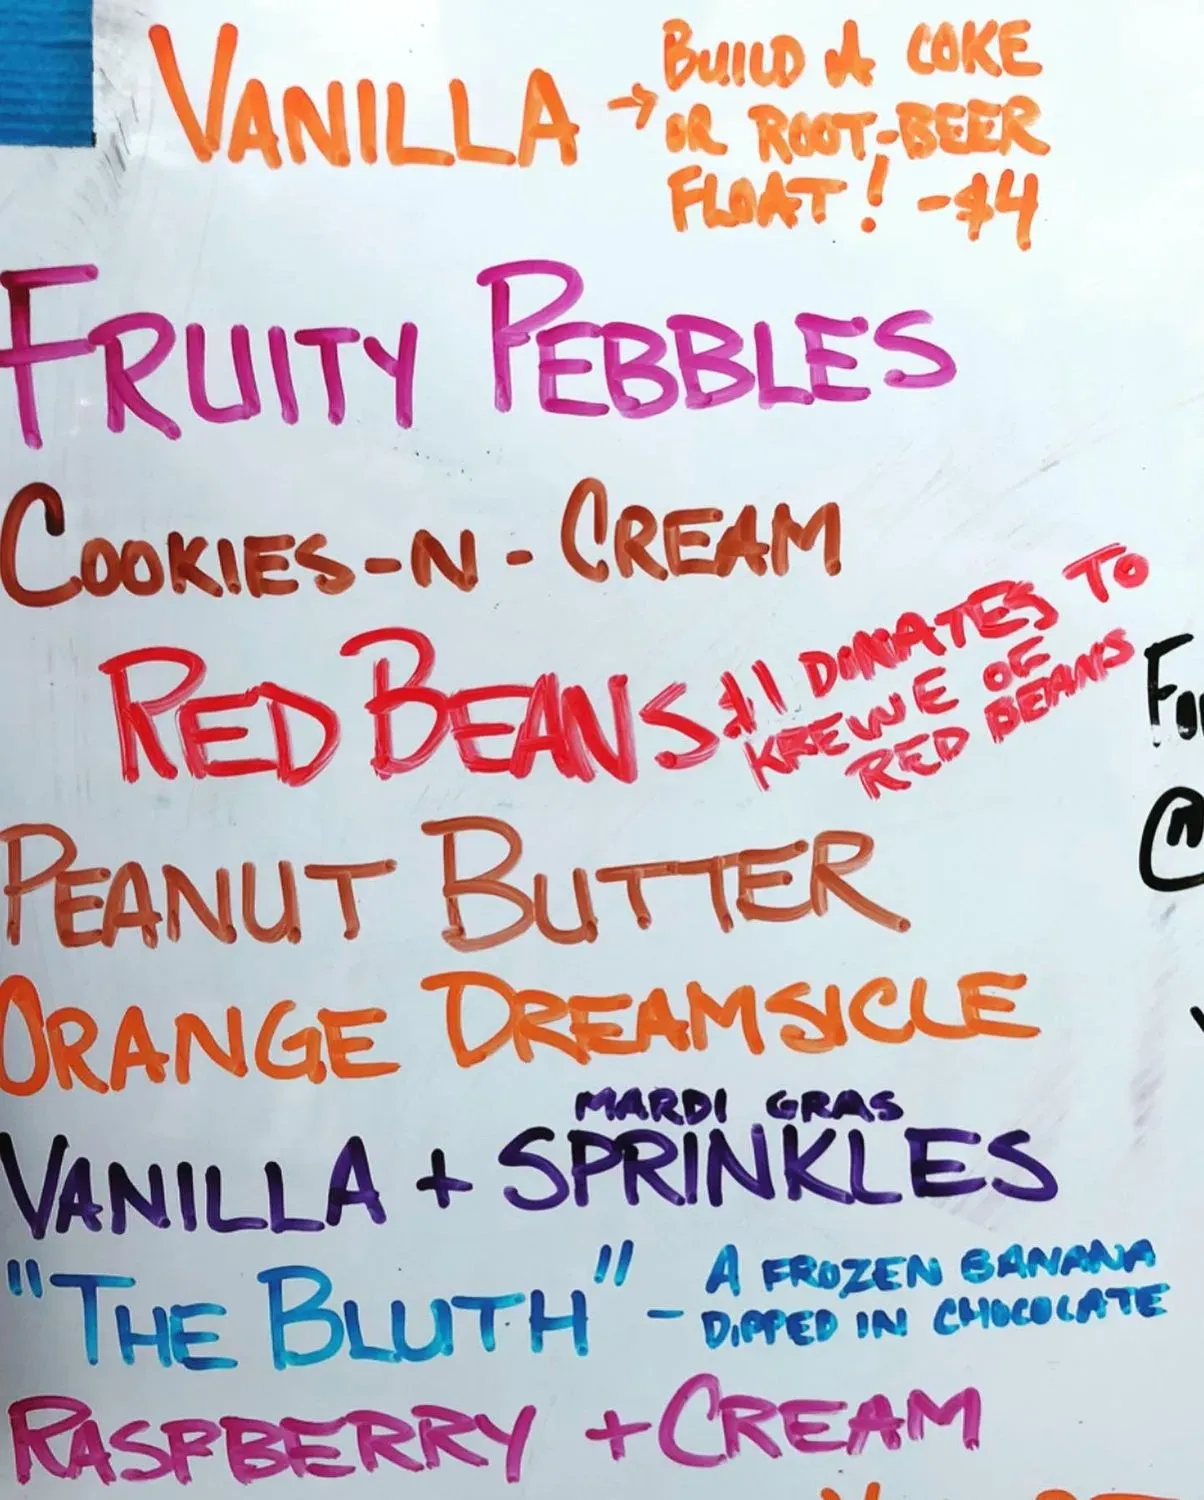 VANILLA → BUILD A COKE
OR ROOT-BEER
FLOAT! -$4
FRUITY PEBBLES
COOKIES-N-CREAM
RED BEANS $1 DONATES TO
KREWE OF
RED BEANS
PEANUT BUTTER
ORANGE DREAMSICLE
MARDI GRAS
VANILLA + SPRINKLES
"THE BLUTH" - A FROZEN BANANA
DIPPED IN CHOCOLATE
RASPBERRY + CREAM